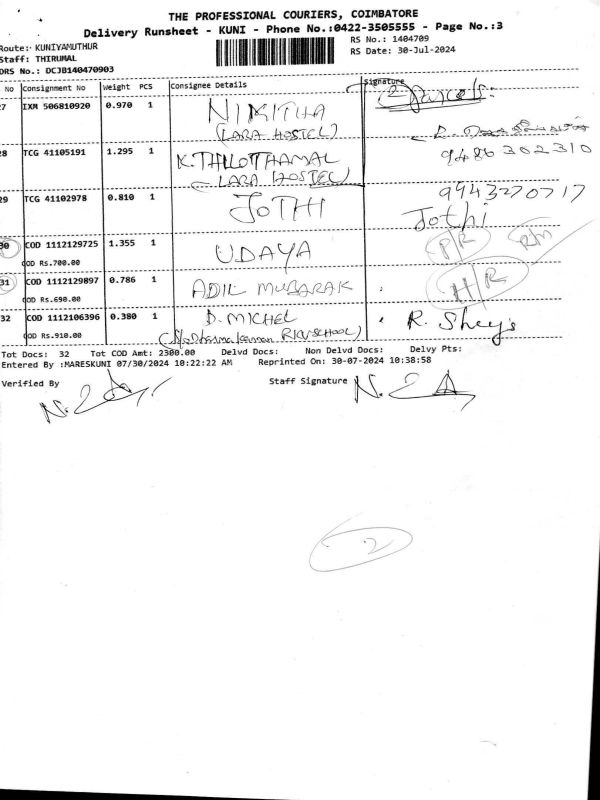 THE PROFESSIONAL COURIERS, COIMBATORE
Delivery Runsheet - KUNI - Phone No.:0422-3505555 - Page No.:3
Route: KUNIYAMUTHUR
RS No.: 1404709
Staff: THIRUMAL
RS Date: 30-Jul-2024
DRS No.: DCJB140470903
No Consignment No Weight PCS Consignee Details Signature
27 IXM 506810920 0.970 1 NIKITHA 2 Parcels:
(LARA HOSTEL)
28 TCG 41105191 1.295 1 K.THILOTHAMAL 9486302310
(LARA HOSTEL)
29 TCG 41102978 0.810 1 JOTHI 9943270717
Jothi
30 COD 1112129725 1.355 1 UDAYA P/R
COD Rs.700.00
31 COD 1112129897 0.786 1 ADIL MUBARAK H/R
COD Rs.690.00
32 COD 1112106396 0.380 1 D. MICHEL
COD Rs.910.00
Tot Docs: 32 Tot COD Amt: 2300.00 Delvd Docs: Non Delvd Docs: Delvy Pts:
Entered By :MARESKUNI 07/30/2024 10:22:22 AM Reprinted On: 30-07-2024 10:38:58
Verified By Staff Signature
2